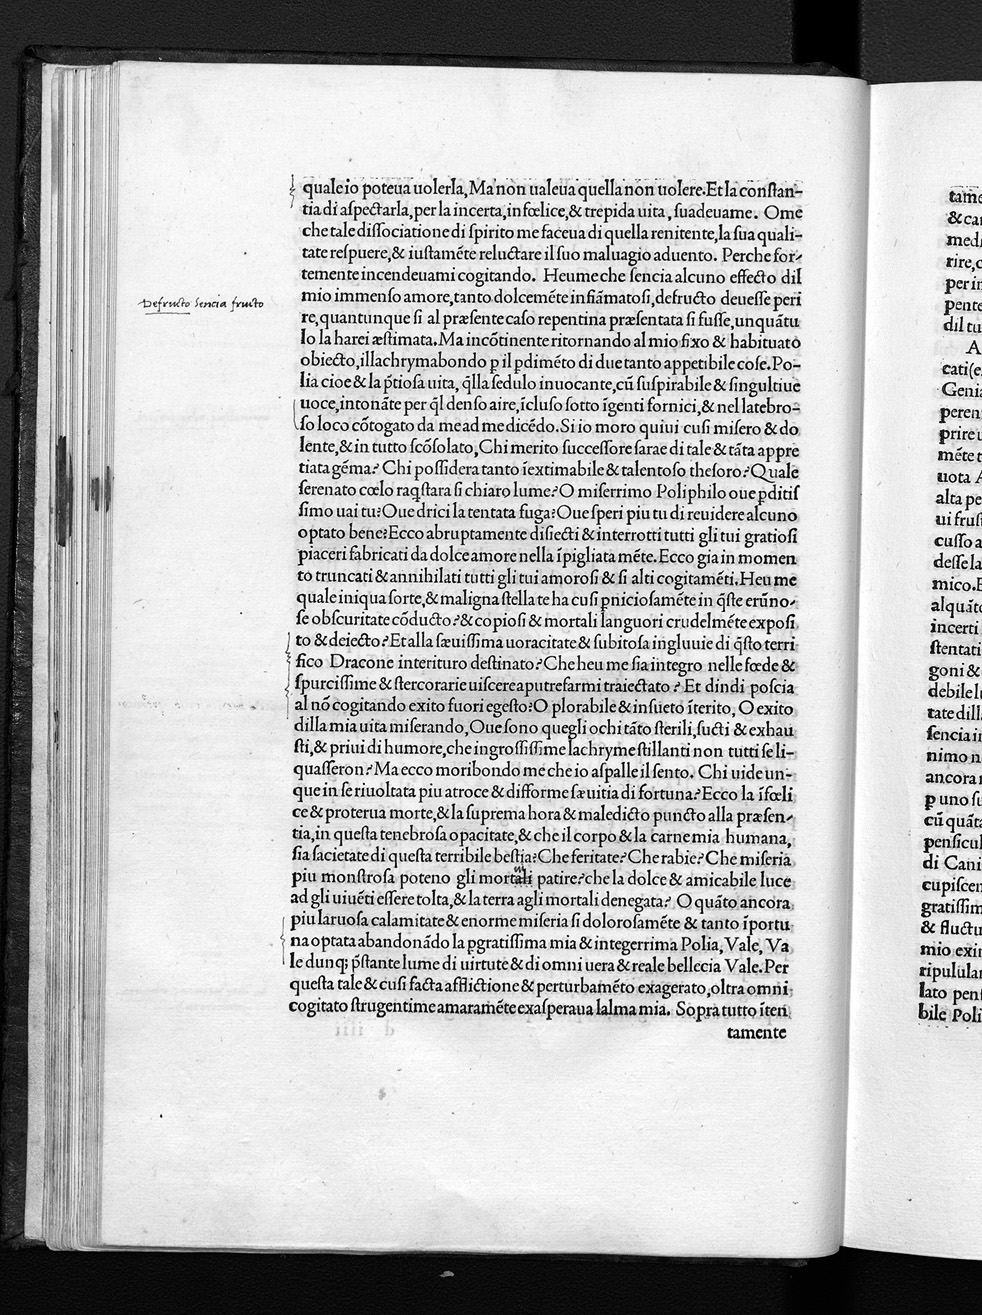 quale io poteua uolerla, Ma non ualeua quella non uolere. Et la constan-
tia di aspectarla, per la incerta, infœlice, & trepida uita, suadeuame. Ome
che tale dissociatione di spirito me faceua di quella renitente, la sua quali-
tate respuere, & iustamẽte reluctare il suo maluagio aduento. Perche for-
temente incendeuami cogitando. Heu me che sencia alcuno effecto dil
Defructo sencia fructo
mio immenso amore, tanto dolcemẽte infiãmatosi, defructo deuesse peri
re, quantunque si al præsente caso repentina præsentata si fusse, unquãtu
lo la harei æstimata. Ma incõtinente ritornando al mio fixo & habituato
obiecto, illachrymabondo ꝑ il ꝑdimẽto di due tanto appetibile cose. Po-
lia cioe & la p̃tiosa uita, q̃lla sedulo inuocante, cũ suspirabile & singultiue
uoce, intonãte per q̃l denso aire, ĩcluso sotto ĩgenti fornici, & nel latebro-
so loco cõtogato da me ad me dicẽdo. Si io moro quiui cusi misero & do
lente, & in tutto scõsolato, Chi merito successore sarae di tale & tãta appre
tiata gẽma? Chi possidera tanto ĩextimabile & talentoso thesoro? Quale
serenato cœlo raq̃stara si chiaro lume? O miserrimo Poliphilo oue ꝑditis
simo uai tu? Oue drici la tentata fuga? Oue speri piu tu di reuidere alcuno
optato bene? Ecco abruptamente disiecti & interrotti tutti gli tui gratiosi
piaceri fabricati da dolce amore nella ĩpigliata mẽte. Ecco gia in momen
to truncati & annihilati tutti gli tui amorosi & si alti cogitamẽti. Heu me
quale iniqua sorte, & maligna stella te ha cusi ꝑniciosamẽte in q̃ste erũno-
se obscuritate cõducto? & copiosi & mortali languori crudelmẽte exposi
to & deiecto? Et alla sæuissima uoracitate & subitosa ingluuie di q̃sto terri
fico Dracone interituro destinato? Che heu me sia integro nelle fœde &
spurcissime & stercorarie uiscere a putrefarmi traiectato? Et dindi poscia
al nõ cogitando exito fuori egesto? O plorabile & insueto ĩterito, O exito
dilla mia uita miserando, Oue sono quegli ochi tãto sterili, sucti & exhau
sti, & priui di humore, che in grossissime lachryme stillanti non tutti se li-
quasseron? Ma ecco moribondo me che io aspalle il sento. Chi uide un-
que in se riuoltata piu atroce & difforme sæuitia di fortuna? Ecco la ĩfœli
ce & proterua morte, & la suprema hora & maledicto puncto alla præsen-
tia, in questa tenebrosa opacitate, & che il corpo & la carne mia humana,
sia sacietate di questa terribile bestia? Che feritate? Che rabie? Che miseria
piu monstrosa poteno gli mortali patire? che la dolce & amicabile luce
ad gli uiuẽti essere tolta, & la terra agli mortali denegata? O quãto ancora
piu laruosa calamitate & enorme miseria si dolorosamẽte & tanto ĩportu
na optata abandonãdo la ꝑgratissima mia & integerrima Polia, Vale, Va
le dunq; p̃stante lume di uirtute & di omni uera & reale bellecia Vale. Per
questa tale & cusi facta afflictione & perturbamẽto exagerato, oltra omni
cogitato strugentime amaramẽte exasperaua lalma mia. Sopra tutto ĩteri
tamente